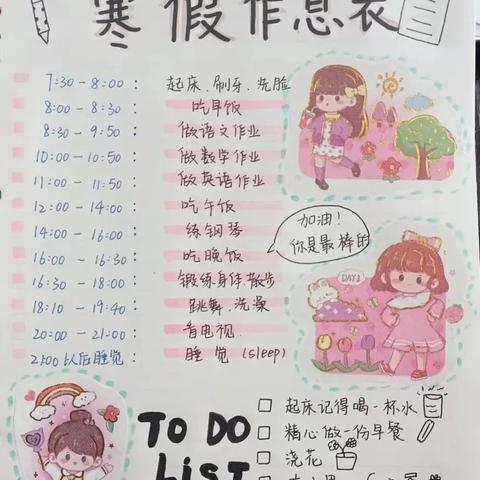 寒假作息表
7:30 - 8:00 : 起床、刷牙、洗脸
8:00 - 8:30 : 吃早饭
8:30 - 9:50 : 做语文作业
10:00 - 10:50 : 做数学作业
11:00 - 11:50 : 做英语作业
12:00 - 14:00 : 吃午饭
14:00 - 16:00 : 练钢琴
16:00 - 16:30 : 吃晚饭
16:30 - 18:00 : 锻练身体,散步
18:10 - 19:40 : 跳舞、洗澡
20:00 - 21:00 : 看电视.
21:00 以后睡觉: 睡觉 (sleep)
加油!
你是最棒的
DAY1
TO DO
LIST
起床记得喝一杯水
精心做一份早餐
浇花